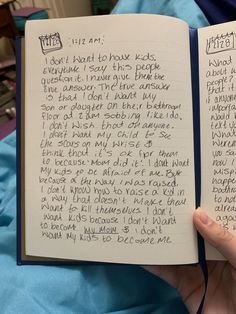 7/27 1:12 AM;
I don't want to have kids.
Everytime I say this people
question it. I never give them the
true answer. The true answer
is that I don't want my
son or daughter on their bathroom
floor at 2am sobbing like I do.
I don't wish that on anyone.
I don't want my child to see
the scars on my wrist &
think that it's ok for them
to because "Mom did it". I don't want
my kids to be afraid of me. But
because of the way I was raised,
I don't know how to raise a kid in
a way that doesn't make them
want to kill themselves. I don't
want kids because I don't want
to become my mom & I don't
want my kids to become me
7/28
What
about
that
it
any
would
text y
What
were
you
say
now
misp
happ
bad
to
not
alre
aga